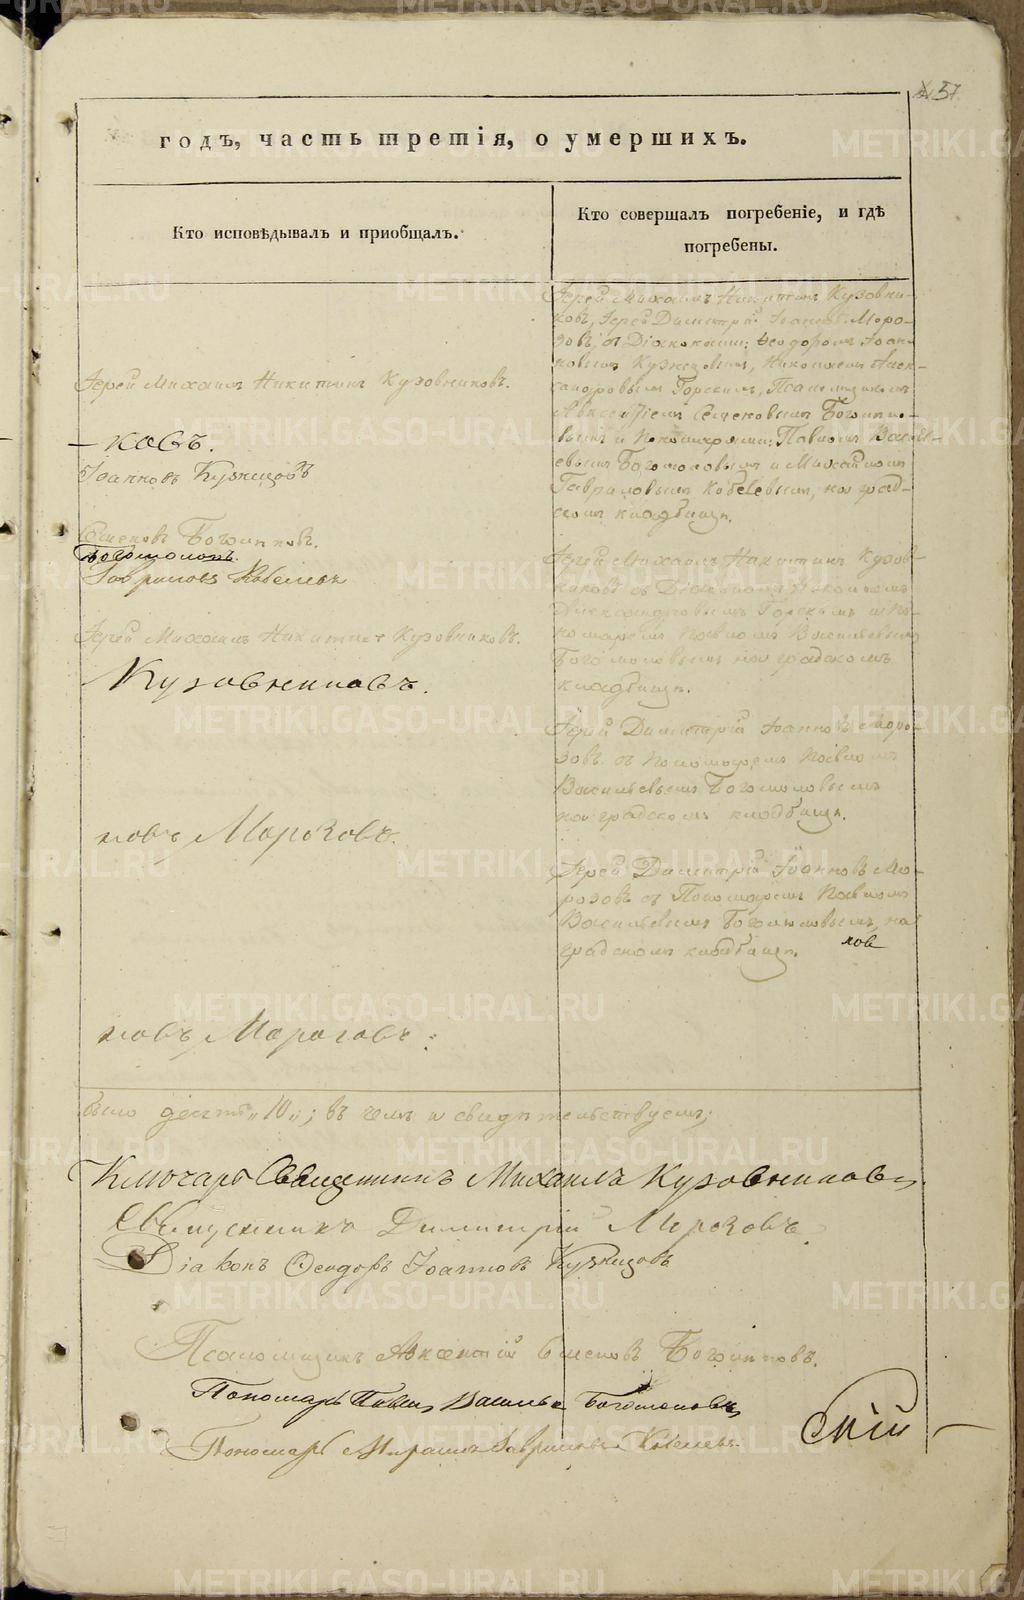 57.
годъ, часть третія, о умершихъ.
Кто исповѣдывалъ и приобщалъ.
Кто совершалъ погребеніе, и гдѣ
погребены.
Іерей Михаилъ Никитинъ Кузовниковъ.
ковъ.
Іоанновъ Кузнецовъ
Семеновъ
Богомоловъ.
Гавриловъ Кобелевъ
Іерей Михаилъ Никитинъ Кузовниковъ.
Кузовниковъ.
новъ Морозовъ.
новъ Морозовъ.
Іерей Михаилъ Никитинъ Кузовни-
ковъ, Іерей Димитрій Іоанновъ Моро-
зовъ съ Діаконами: Ѳеодоромъ Іоан-
новымъ Кузнецовымъ, Николаемъ Алек-
сандровымъ Горскимъ, Псаломщикомъ
Авксентіемъ Семеновымъ
вымъ и Пономарями: Павломъ Василь-
евымъ Богомоловымъ и Михаиломъ
Гавриловымъ Кобелевымъ, на град-
скомъ кладбищѣ.
Іерей Михаилъ Никитинъ Кузов-
никовъ съ Діакономъ Николаемъ
Александровымъ Горскимъ и По-
номаремъ Павломъ Васильевымъ
Богомоловымъ на градскомъ
кладбищѣ.
Іерей Димитрій Іоанновъ Моро-
зовъ съ Пономаремъ Павломъ
Васильевымъ Богомоловымъ
на градскомъ кладбищѣ.
Іерей Димитрій Іоанновъ Мо-
розовъ съ Пономаремъ Павломъ
Васильевымъ Богомоловымъ, на
градскомъ кладбищѣ.
ков
было десять "10"; въ чемъ и свидѣтельствуемъ;
Ключарь Священникъ Михаилъ Кузовниковъ
Священникъ Димитрій Морозовъ.
Діаконъ Ѳеодоръ Іоанновъ Кузнецовъ
Псаломщикъ Авксентій Семеновъ
Пономарь Павелъ Васильевъ Богомоловъ
Пономарь Михаилъ Гавриловъ Кобелевъ.
скій
METRIKI.GASO-URAL.RU